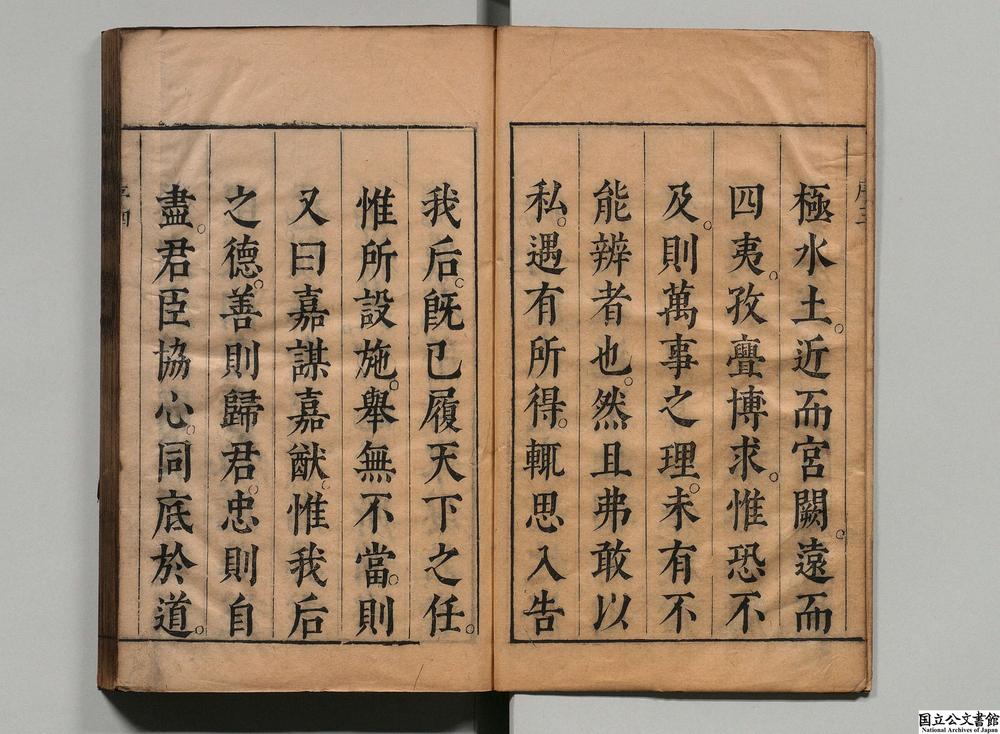 極水土。近而宮闕。遠而
四夷。孜亹博求。惟恐不
及。則萬事之理。未有不
能辨者也。然且弗敢以
私。遇有所得。輒思入告
我后。旣已履天下之任。
惟所設施。舉無不當。則
又曰嘉謀嘉猷。惟我后
之德。善則歸君。忠則自
盡。君臣協心。同底於道。
国立公文書館
National Archives of Japan